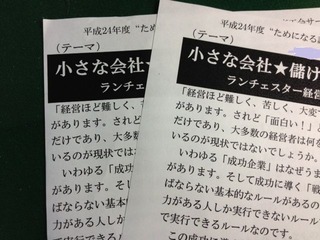 平成24年度 “ため
(テーマ)
小さな会社★
ランチェス
「経営ほど難しく、
があります。され
だけであり、大多数
いるのが現状では
いわゆる「成功
があります。そし
ばならない基本的
力がある人しか実
で実行できる
平成24年度 “ためになる
(テーマ)
小さな会社★儲け
ランチェスター経営
「経営ほど難しく、苦しく、大変
があります。されど「面白い！」
だけであり、大多数の経営者は何を
いるのが現状ではないでしょうか。
いわゆる「成功企業」はなぜうま
があります。そして成功に導く「戦
ばならない基本的なルールがあるの
力がある人しか実行できないルール
で実行できるルールなのです。
この成功に導